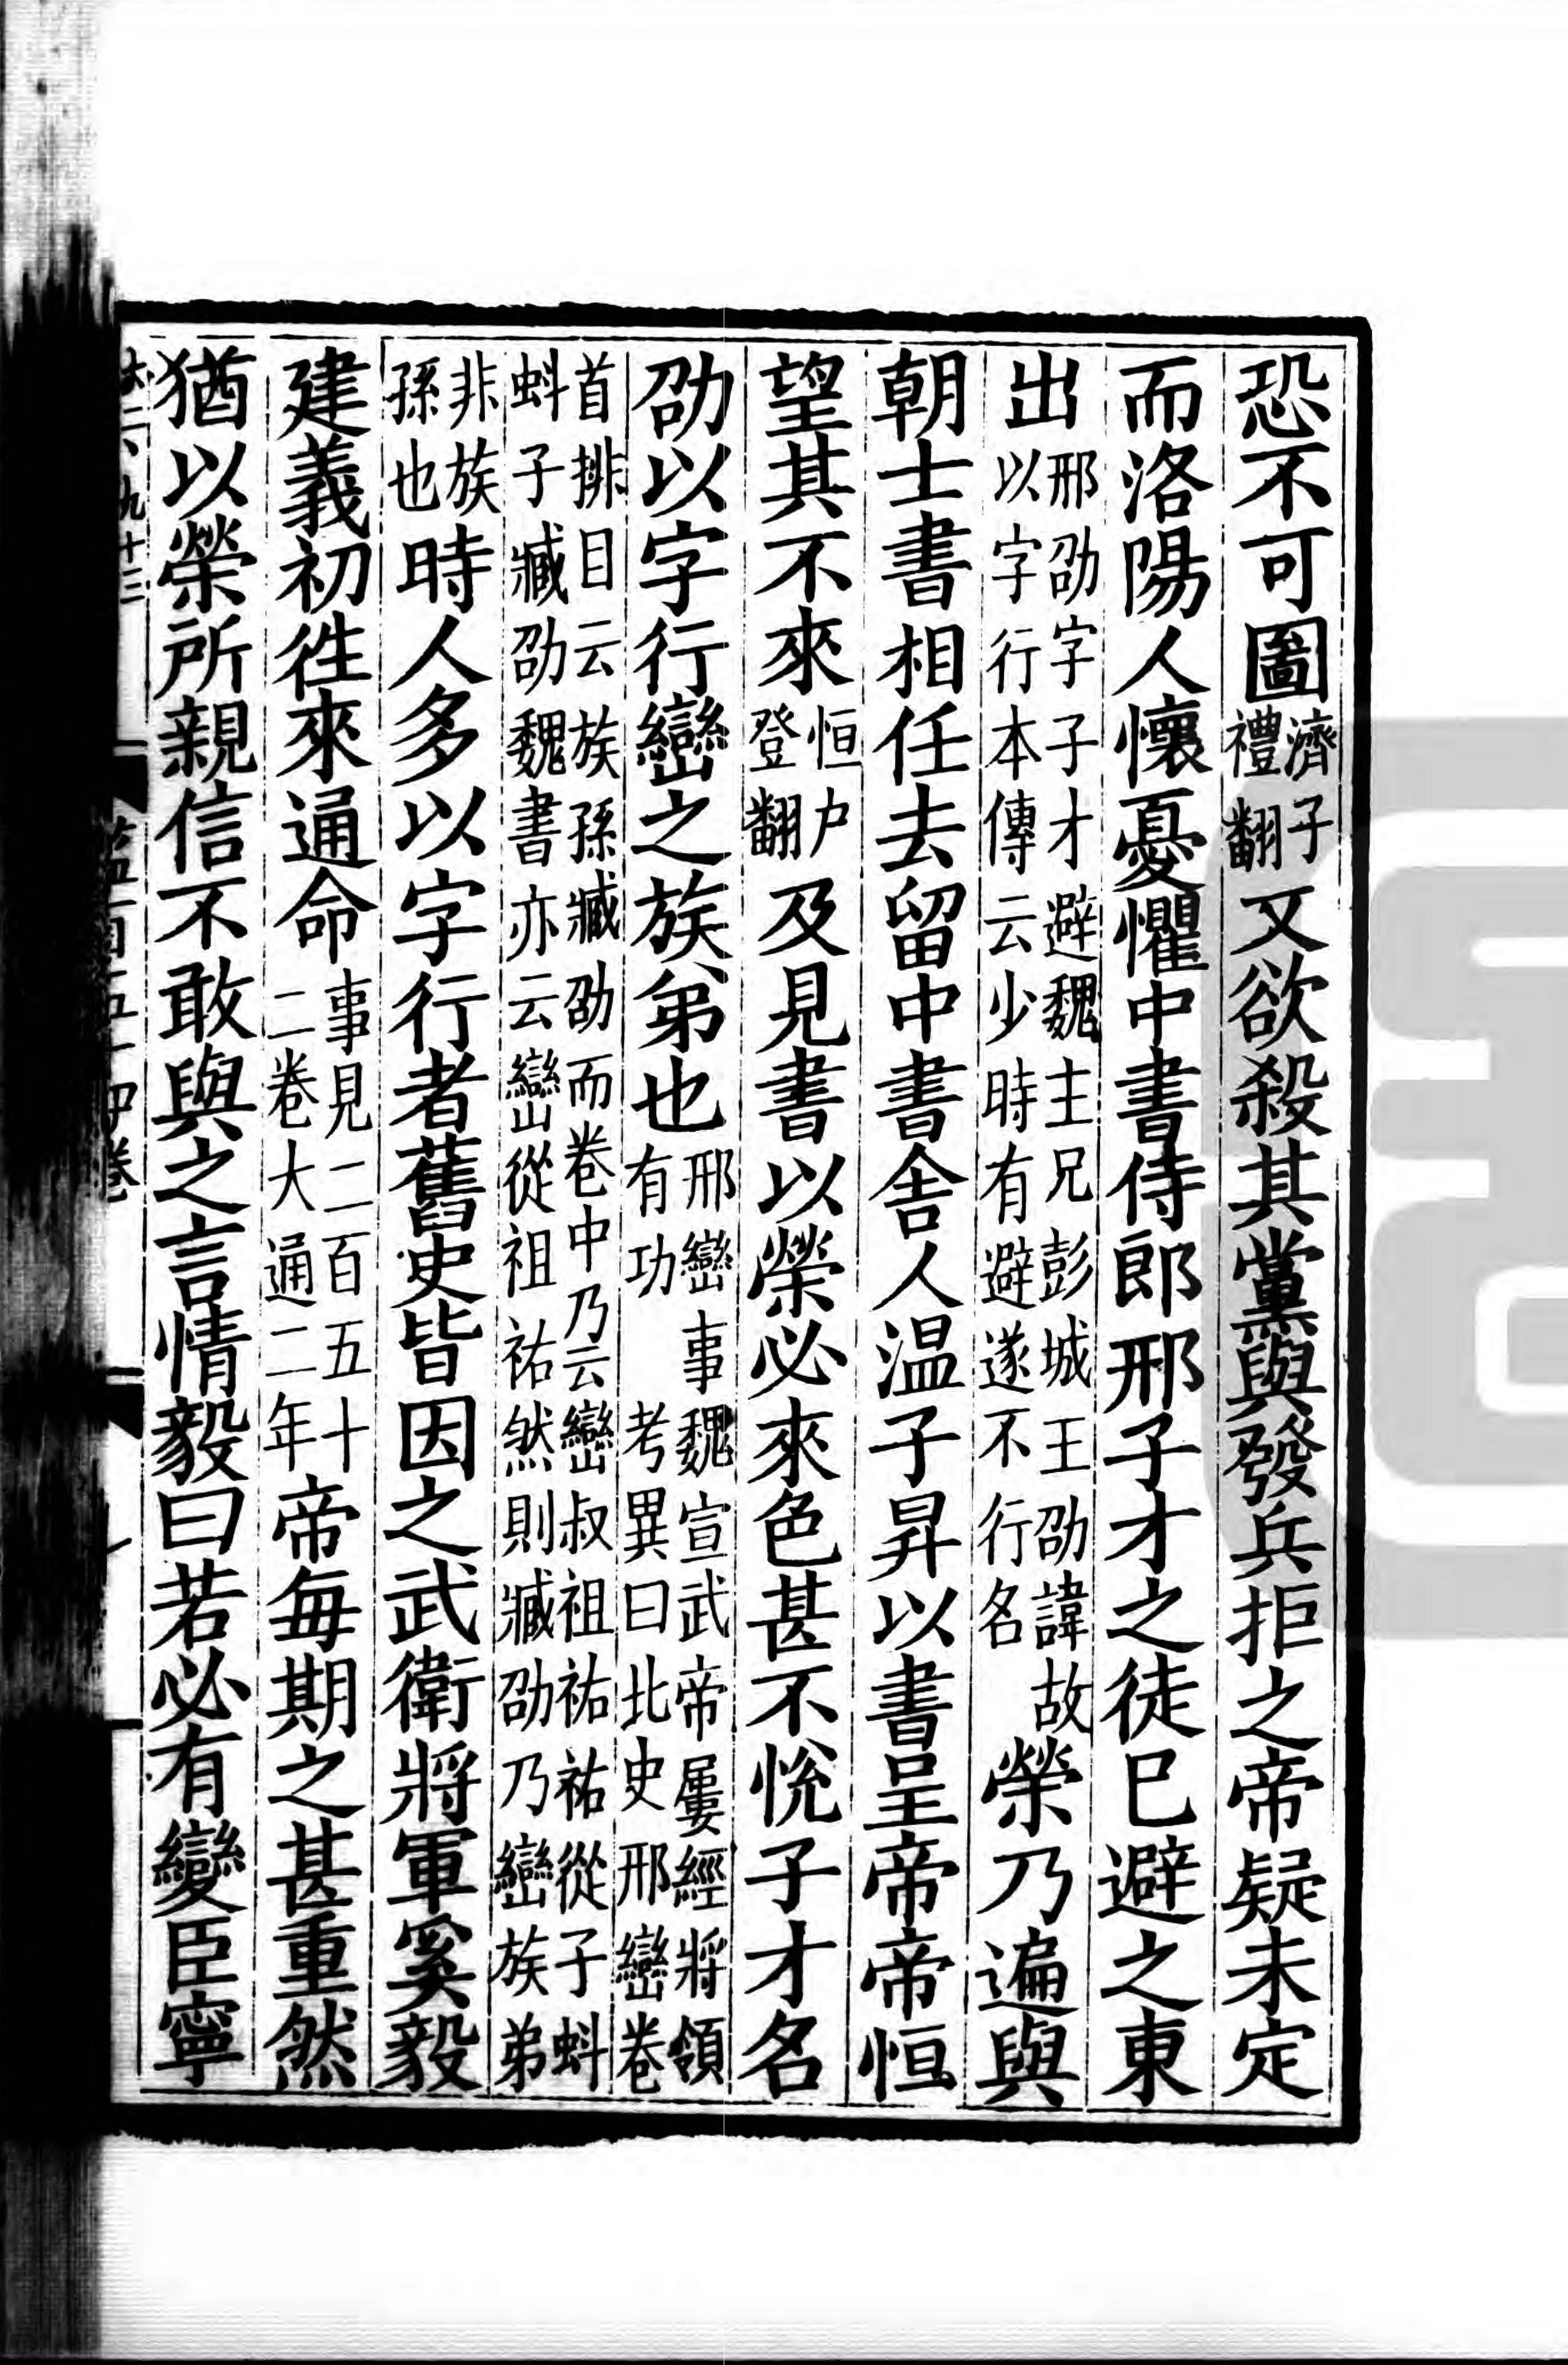 恐不可圖濟子禮翻又欲殺其黨與發兵拒之帝疑未定
而洛陽人懷憂懼中書侍郎邢子才之徒巳避之東
出邢劭字子才避魏主兄彭城王劭諱故以字行本傳云少時有避遂不行名榮乃遍與
朝士書相任去留中書舍人温子昇以書呈帝帝恒
望其不來恒户登翻及見書以榮必來色甚不恱子才名
劭以字行巒之族弟也邢巒事魏宣武帝屢經將領有功考異曰北史邢巒卷
首排目云族孫臧劭而卷中乃云巒叔祖祐祐從子蚪蚪子臧劭魏書亦云巒從祖祐然則臧劭乃巒族弟
非族孫也時人多以字行者舊史皆因之武衛將軍奚毅
建義初徃來通命事見二百五十二卷大通二年帝每期之甚重然
猶以榮所親信不敢與之言情毅曰若必有變臣寧